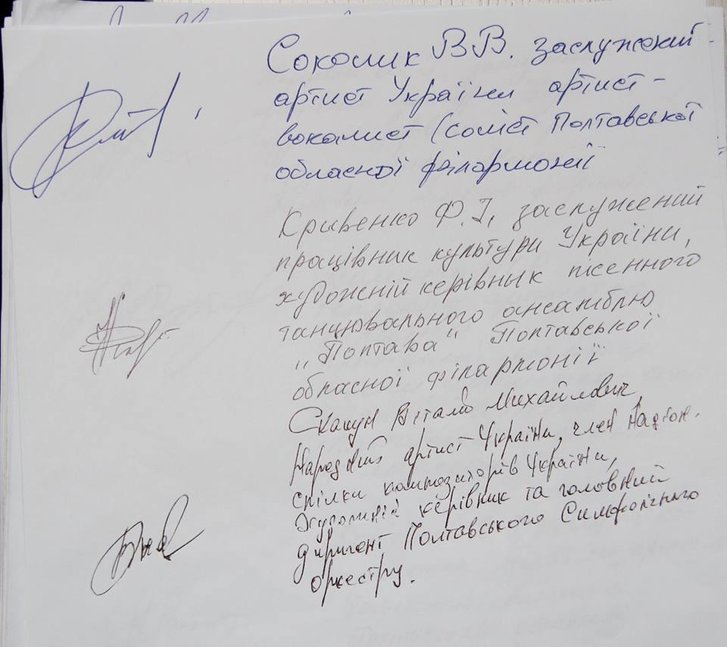 Соколик В В. заслужений
артист України артист-
вокаліст (соліст Полтавської
обласної філармонії
Кривенко Ф. І, заслужений
працівник культури України,
художній керівник пісенного
танцювального ансамблю
"Полтава" Полтавської
обласної філармонії
Скакун Віталій Михайлович,
Народний артист України, член Націон.
спілки композиторів України,
Художній керівник та головний
диригент Полтавського Симфонічного
оркестру.